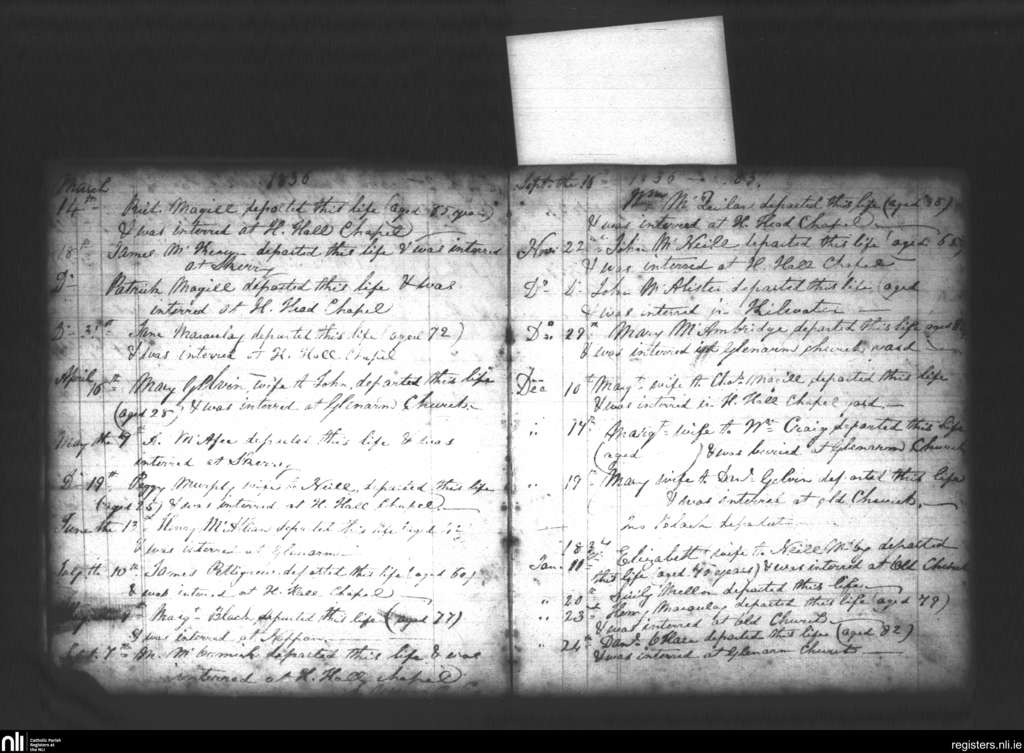 March 1836
14th Richd. Magill departed this life (aged 85 years)
& was interred at H. Hall Chapel
18th James McKeag departed this life & was interred
at Skerry
Do Patrick Magill departed this life & was
interred at H. Head Chapel
Do Jane Macaulay departed this life (aged 72)
& was interred at H. Hall Chapel
April 16th Mary Gelvin wife to John, departed this life
(aged 28) & was interred at Glenarm Church
May the 7th McAfee departed this life & was
interred at Skerry
Do 19th Peggy Murphy wife to Neill, departed this life
(aged 25) & was interred at H. Hall Chapel
June the Henry McAllan departed this life aged
& was interred at Glenarm
July th 10th James Pettigrew departed this life (aged 60)
& was interred at H. Hall Chapel
Mary Black departed this life (aged 77)
& was interred at
Sept. 7th McCormick departed this life & was
interred at H. Hall Chapel
Sept. the 16 1836
Wm McQuilan departed this life (aged 35)
& was interred at H. Head Chapel
Nov. 22 John McNeill departed this life (aged 65)
& was interred at H. Hall Chapel
Do Do John McAlister departed this life (aged
& was interred in Kilwater
Do 29th Mary McAmbridge departed this life aged
& was interred at Glenarm Church yard
Dec 10th Margt. wife to Chas. Magill departed this life
& was interred in H. Hall Chapel yard
" 14th Margt. wife to Wm Craig departed this life
(aged ) & was buried at Glenarm Church
" 19th Mary wife to Danl. Gelvin departed this life
& was interred at old Church
departed
Jan. 11th Elizabeth wife to Neill departed
this life aged 70 years & was interred at Old Church
" 20th Mellon departed this life
" 23rd Henry Macaulay departed this life (aged 79)
& was interred at Old Church
" 24th Danl. O'Hara departed this life (aged 82)
& was interred at Glenarm Church
nli
Catholic Parish
Registers at
the NLI
registers.nli.ie